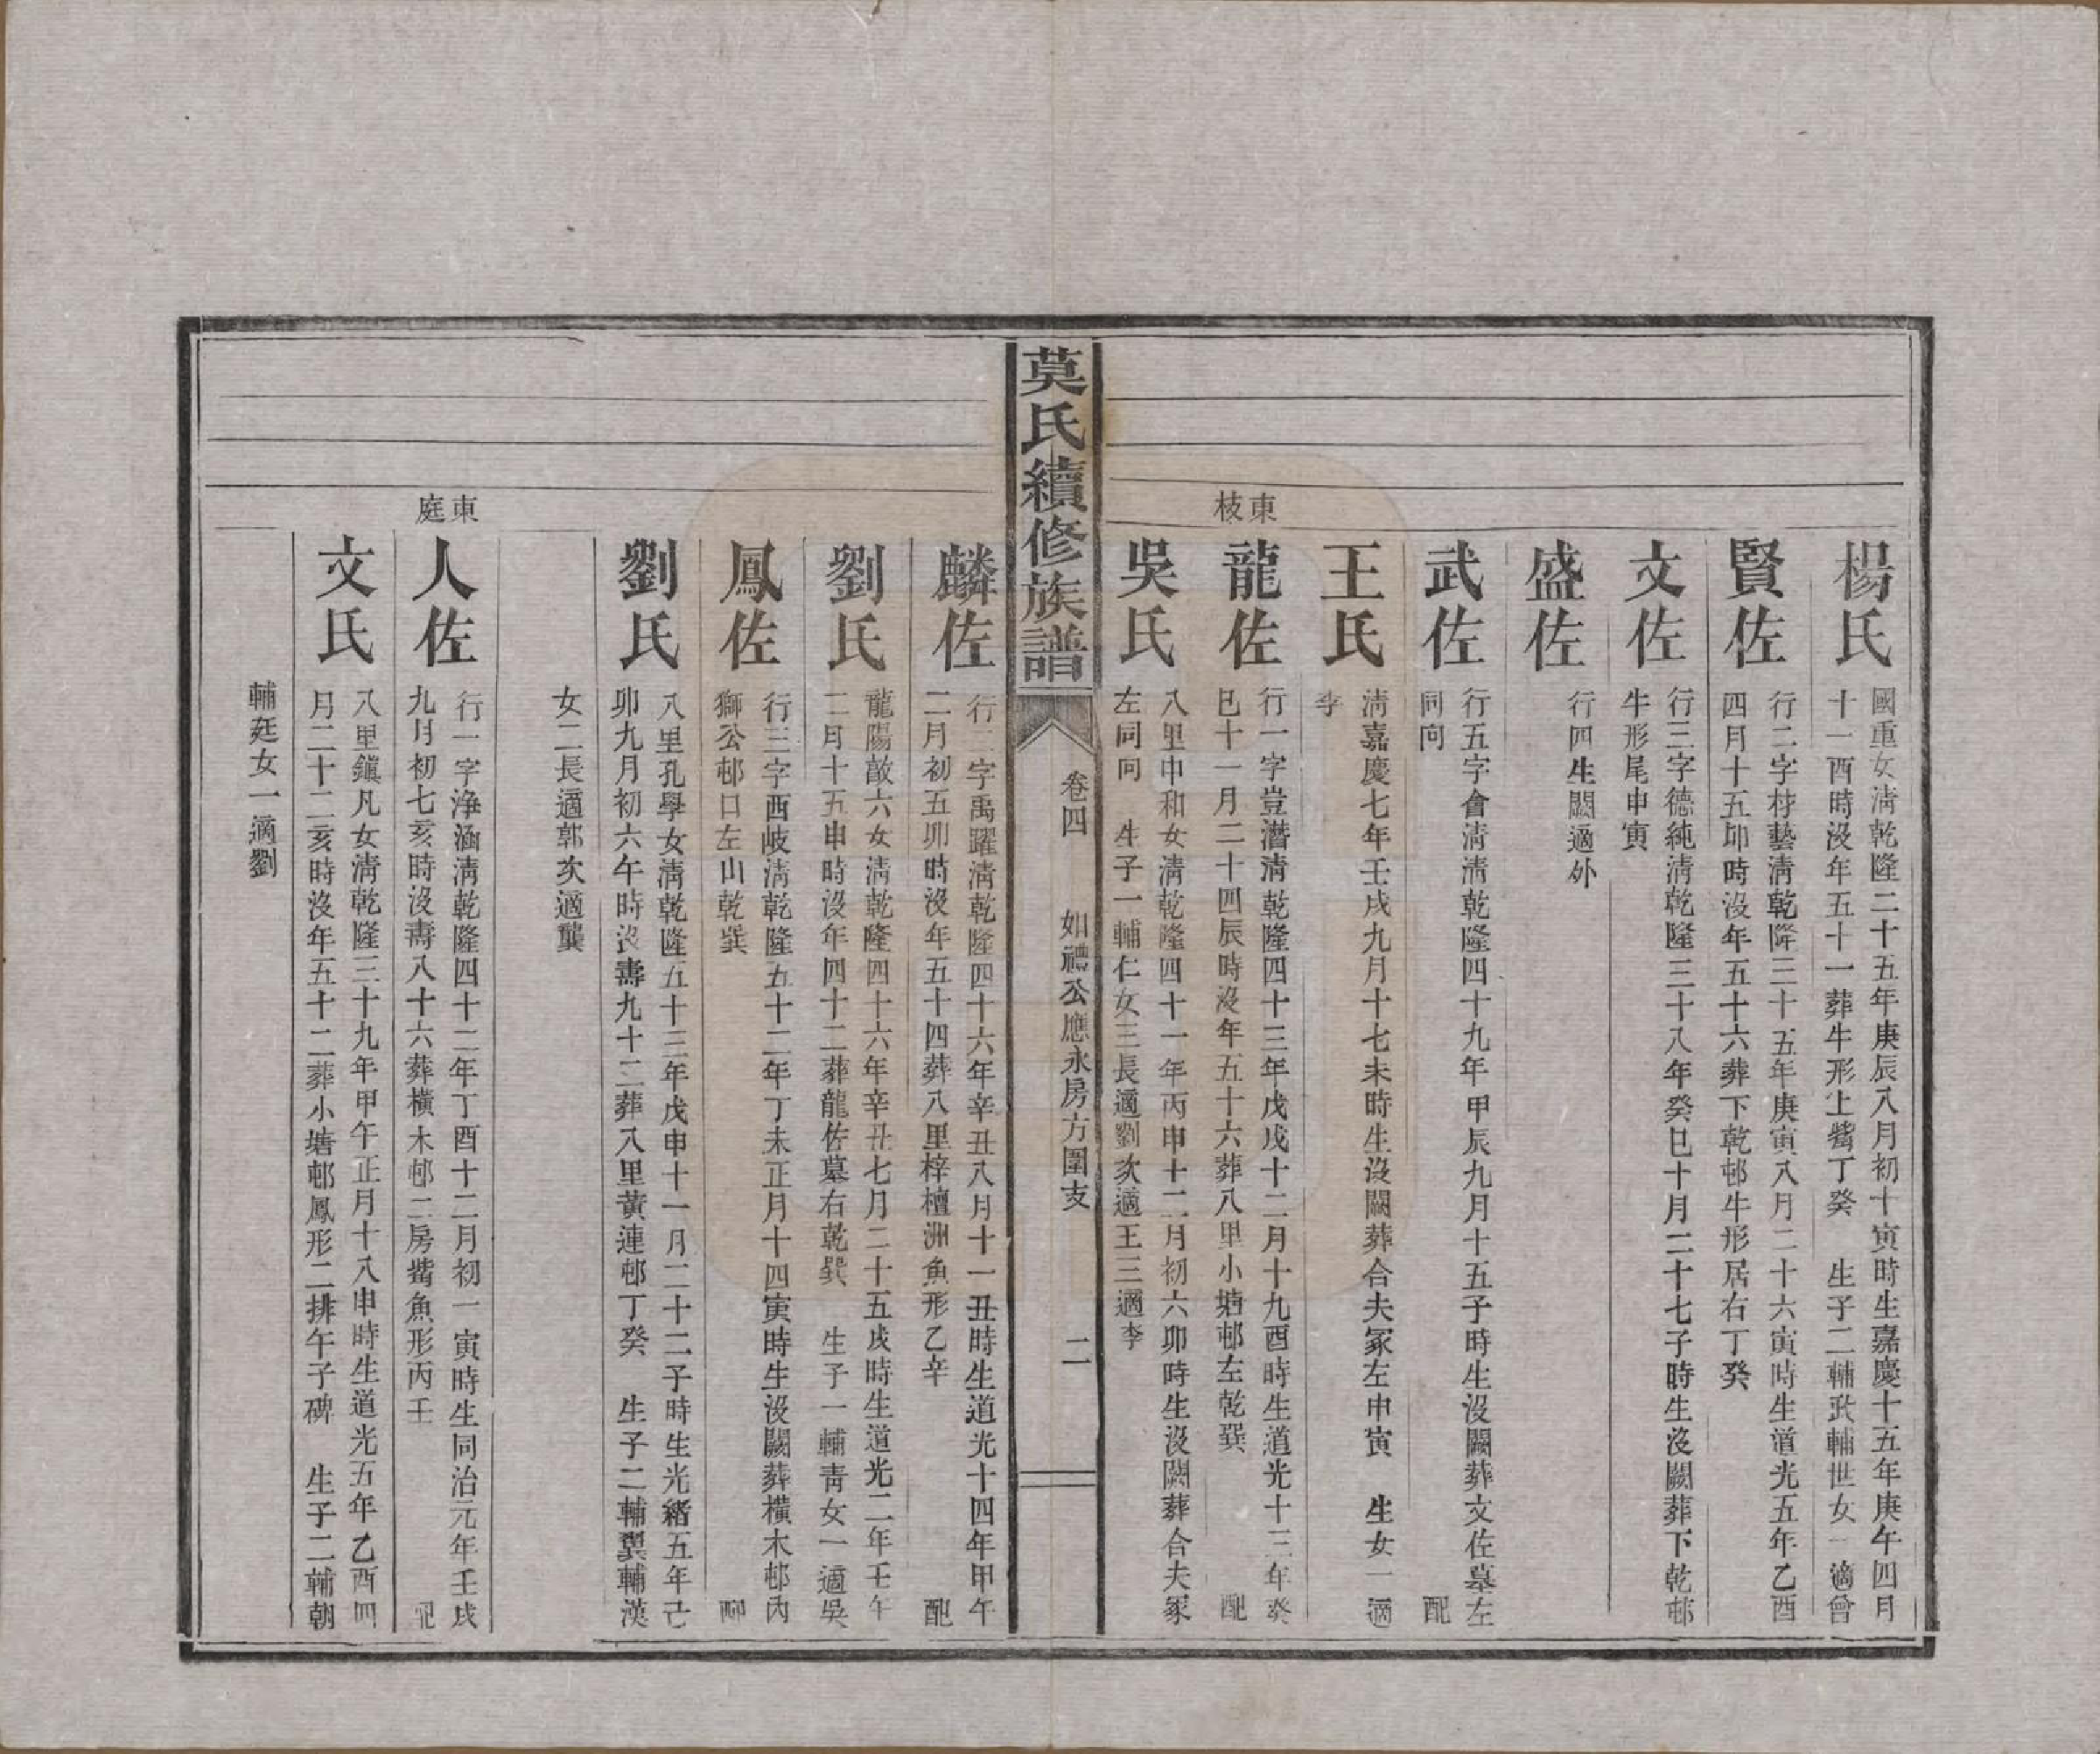 楊氏
國重女淸乾隆二十五年庚辰八月初十寅時生嘉慶十五年庚午四月
十一酉時沒年五十一葬牛形上觜丁癸　生子二輔政輔世女一適曾
賢佐
行二字材藝淸乾隆三十五年庚寅八月二十六寅時生道光五年乙酉
四月十五卯時沒年五十六葬下乾邨牛形居右丁癸
文佐
行三字德純淸乾隆三十八年癸巳十月二十七子時生沒闕葬下乾邨
牛形尾申寅
盛佐
行四生闕適外
武佐
行五字會淸淸乾隆四十九年甲辰九月十五子時生沒闕葬文佐墓左
同向　配
王氏
淸嘉慶七年壬戌九月十七未時生沒闕葬合夫冢左申寅　生女一適
李
東枝
龍佐
行一字豈潛淸乾隆四十三年戊戌十二月十九酉時生道光十三年癸
巳十一月二十四辰時沒年五十六葬八里小塘邨左乾巽　配
吳氏
八里中和女淸乾隆四十一年丙申十二月初六卯時生沒闕葬合夫冢
左同向　生子一輔仁女三長適劉次適王三適李
莫氏續修族譜
卷四　如禮公應永房方圍支　二
麟佐
行二字禹躍淸乾隆四十六年辛丑八月十一丑時生道光十四年甲午
二月初五卯時沒年五十四葬八里梓檀洲魚形乙辛　配
劉氏
龍陽敵六女淸乾隆四十六年辛丑七月二十五戌時生道光二年壬午
二月十五申時沒年四十二葬龍佐墓右乾巽　生子一輔青女一適吳
鳳佐
行三字西岐淸乾隆五十二年丁未正月十四寅時生沒闕葬橫木邨內
獅公邨口左山乾巽　配
劉氏
八里孔學女淸乾隆五十三年戊申十一月二十二子時生光緒五年己
卯九月初六午時沒壽九十二葬八里黃連邨丁癸　生子二輔翼輔漢
女二長適郭次適龔
東庭
人佐
行一字浄涵淸乾隆四十二年丁酉十二月初一寅時生同治元年壬戌
九月初七亥時沒壽八十六葬橫木邨二房觜魚形丙壬　配
文氏
八里鎭凡女淸乾隆三十九年甲午正月十八申時生道光五年乙酉四
月二十二亥時沒年五十二葬小塘邨鳳形二排午子碑　生子二輔朝
輔廷女一適劉